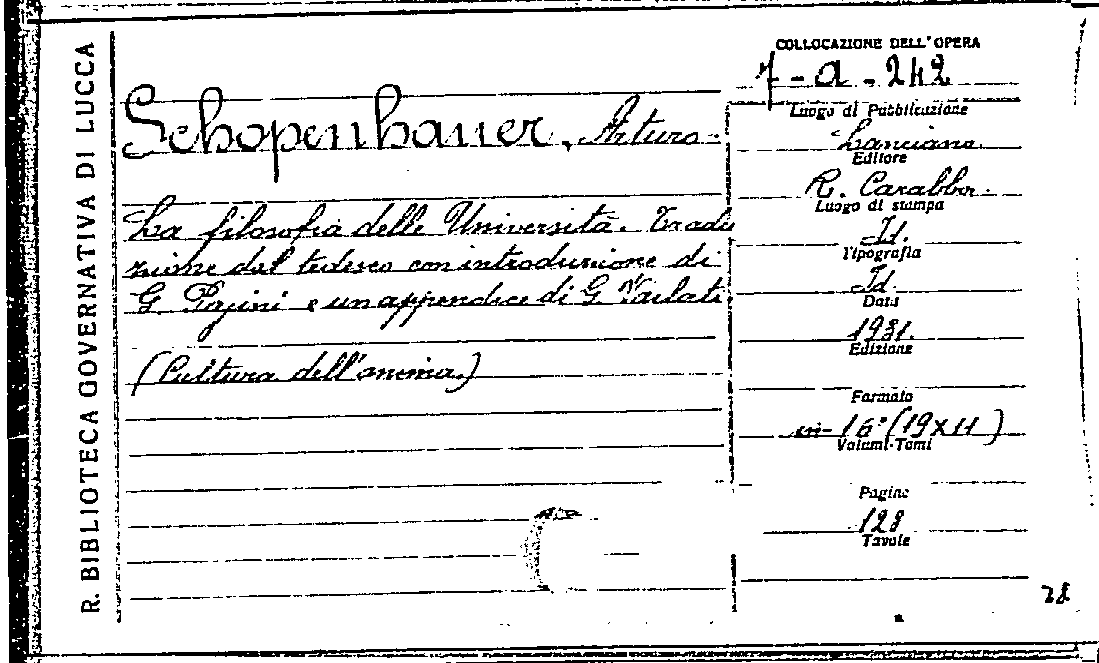 R. BIBLIOTECA GOVERNATIVA DI LUCCA
Schopenhauer, Arturo.
La filosofia delle Università. Tradu
zione dal tedesco con introduzione di
G. Papini e un appendice di G. Vailati
(Cultura dell'anima.)
COLLOCAZIONE DELL'OPERA
7-a-242
Luogo di Pubblicazione
Lanciano.
Editore
R. Carabba.
Luogo di stampa
Id.
Tipografia
Id
Data
1931.
Edizione
Formato
in-16° (19x11)
Volumi-Tomi
Pagine
128
Tavole
28